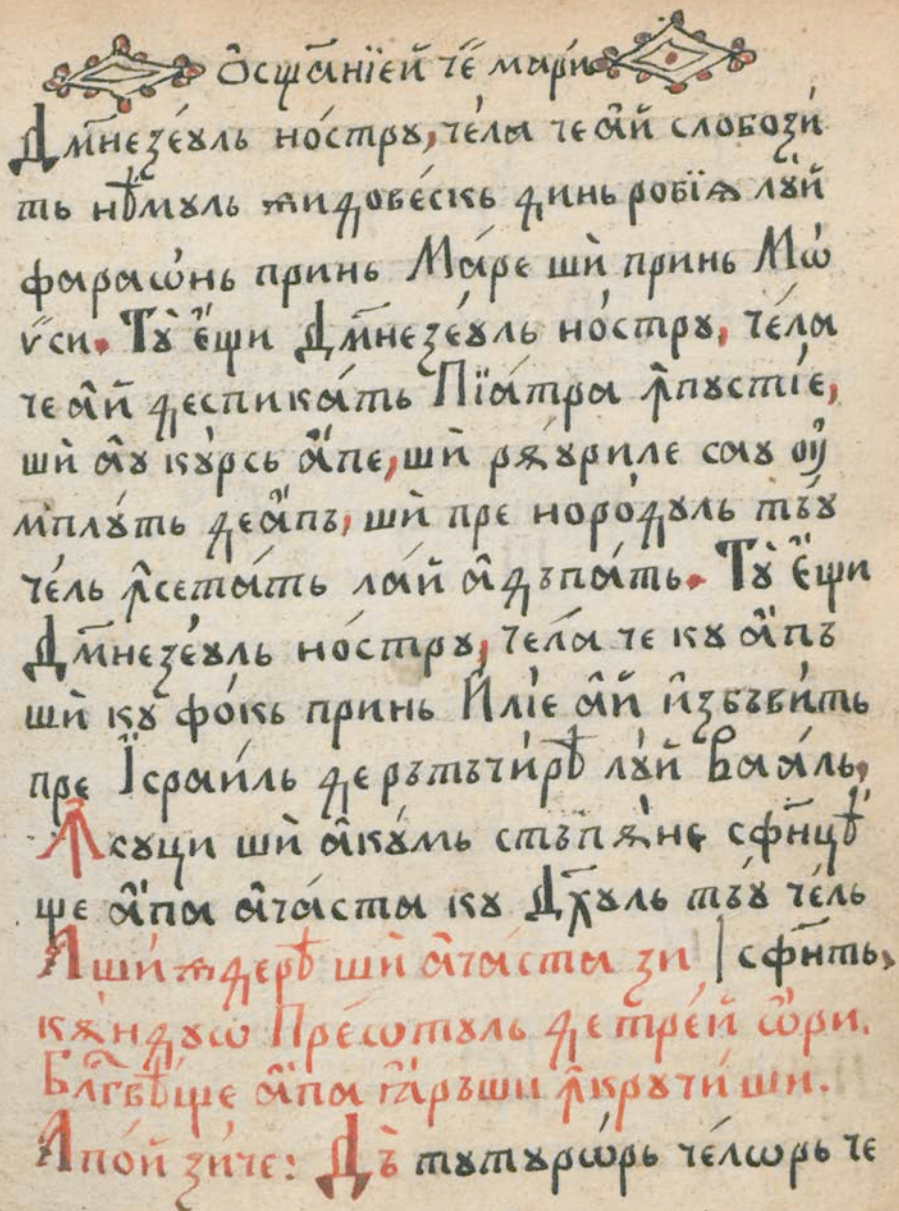 Ѡ҆сщ҃а́нїей че҃ мари́
Дм҃незе́ꙋль но́стрꙋ, че́ла че а҆́й слобози́
ть нѣ́мꙋль жидове́скь динь робі́ѧ лꙋ́й
фараѡ́нь принь Ма́ре шѝ принь Мѡ́
ѵ҆си. Тꙋ̀ є҆́щи Дм҃незе́ꙋль но́стрꙋ, че́ла
че а҆́й деспика́ть Пїа́тра ꙟ҆пꙋсті́е,
шѝ а҆́ꙋ кꙋ́рсь а҆́пе, шѝ рѫ́ꙋриле саꙋ оу҆
мплꙋ́ть деа҆́пъ, шѝ пре норо́дꙋль тъ́ꙋ
че́ль ꙟ҆сета́ть ла́й а҆дъпа́ть. Тꙋ̀ є҆́щи
Дм҃незе́ꙋль но́стрꙋ, че́ла че кꙋ а҆́пъ
шѝ кꙋ фо́кь принь И҆лі́е а҆́й и҆збъви́ть
пре І҆сраи́ль де рътъчи́рѣ лꙋ́й Ваа́ль,
Ꙟсꙋци шѝ а҆кꙋ́мь стъпѫ́не сфн҃цѣ́
ще а҆́па а҆ча́ста кꙋ Дх҃ꙋль тъ́ꙋ че́ль
Аши́ждерѣ шѝ а҆ча́ста зи | сфн҃ть,
кѫ́ндꙋсѡ Пре́ѡтꙋль де тре́й ѡ҆́ри.
Бл҃гвѣ́ще а҆́па ꙗ҆́ръши ꙟ҆крꙋчи́ши.
Апо́й зи́че: Дъ̀ тꙋтꙋрѡ́рь че́лѡрь че